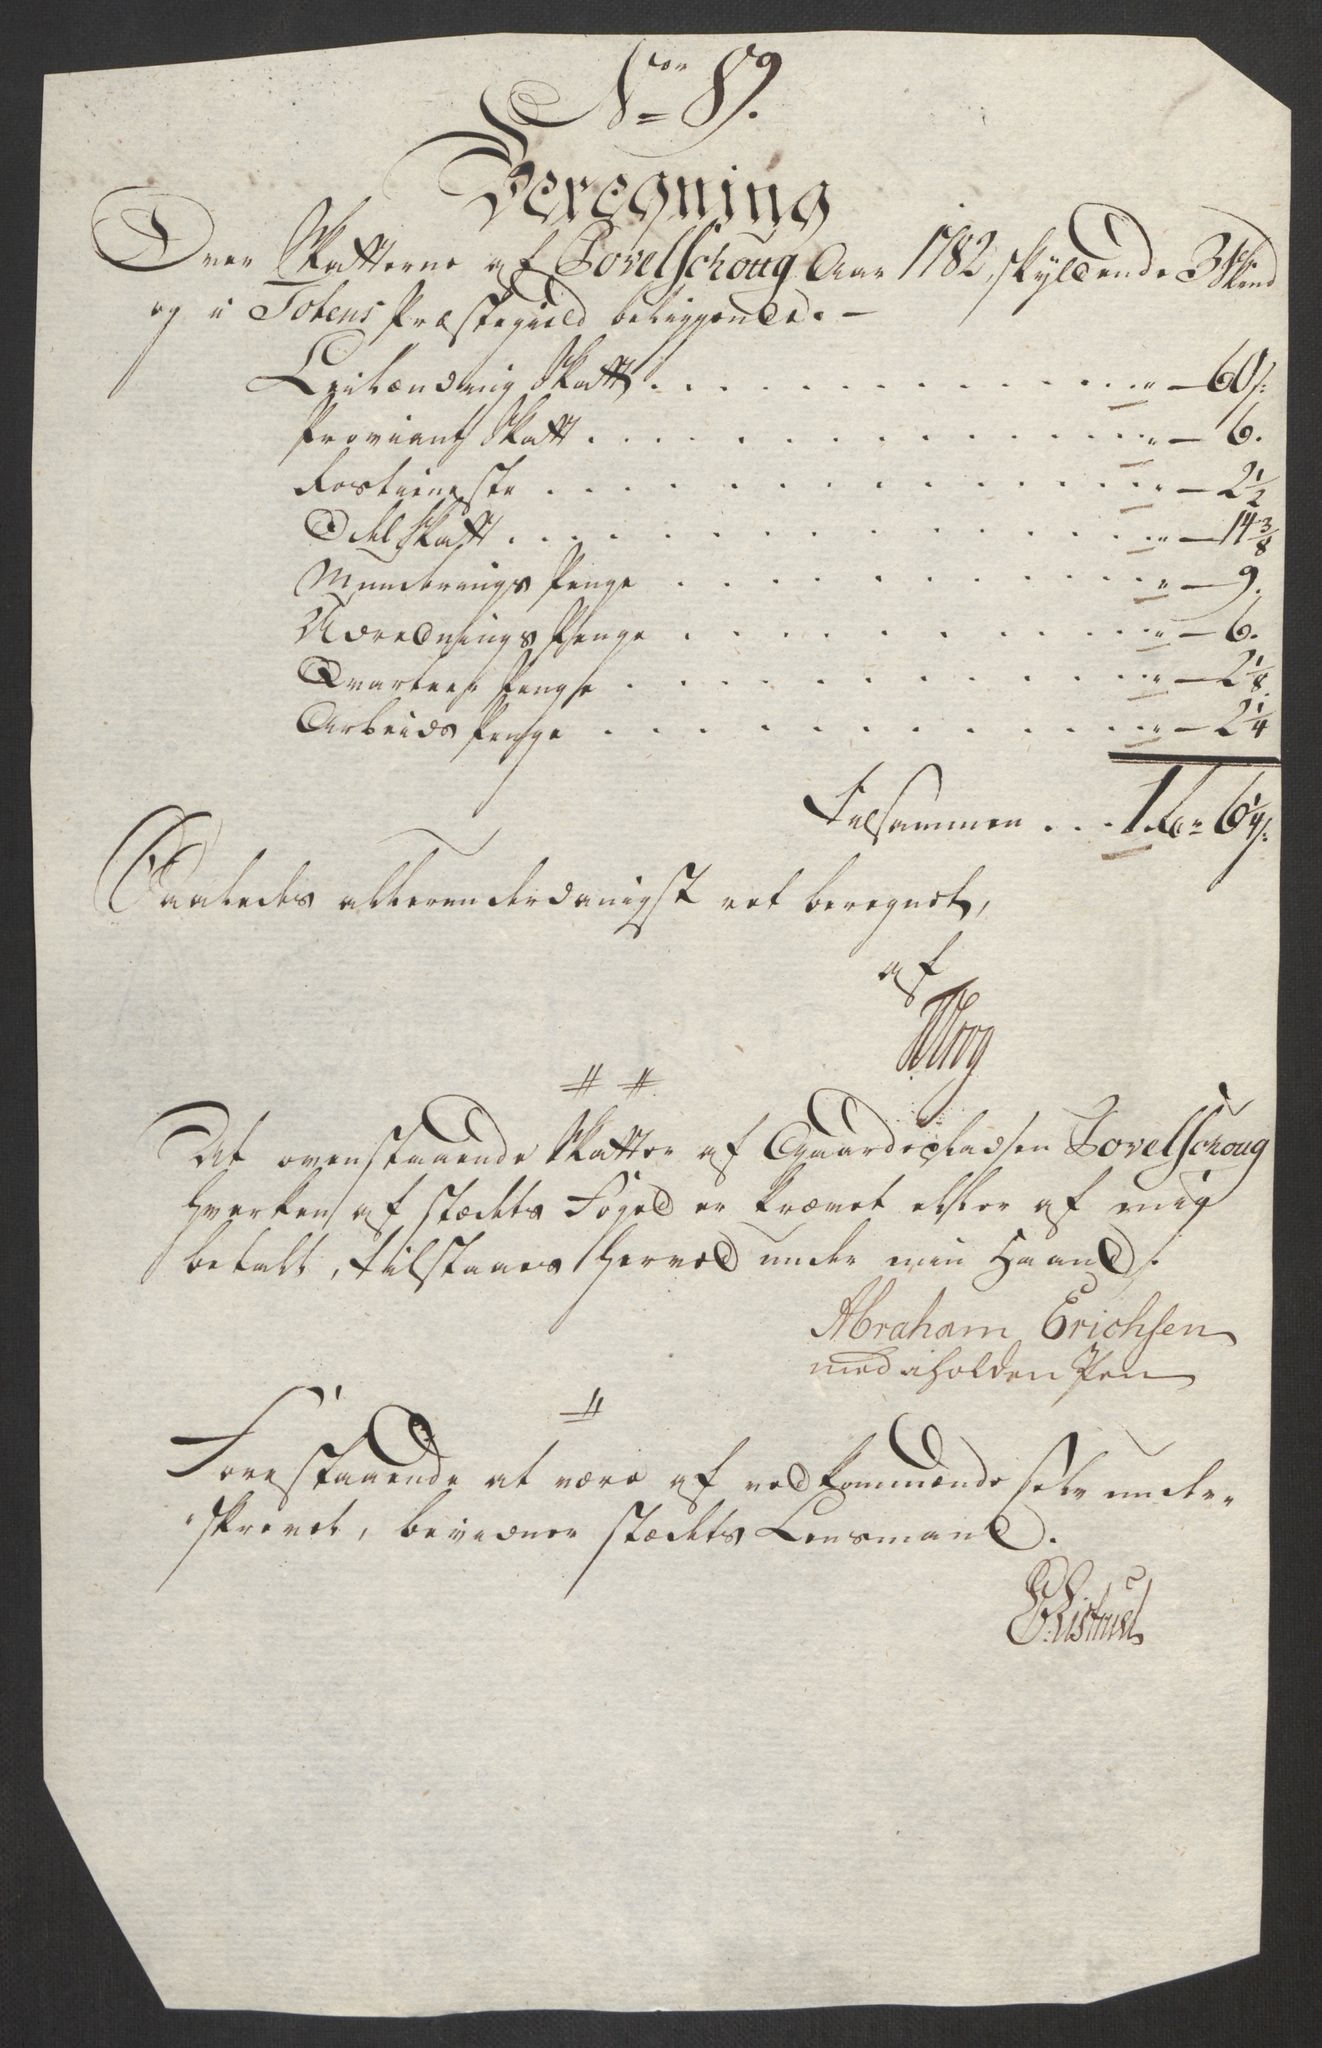 No 89.
Beregning
Over Skatterne af Povelschoug Aar 1782, skyldende 3 Skind
og i Totens Præstegield beliggende. —
Leilændings Skatt . . . . " — 60 s:
Proviant Skatt . . . . " — 6.
Rostieneste . . . . " — 2 1/2
Odelskatt . . . . " — 14 3/8
Munderings Penge . . . . " — 9.
Udrednings Penge . . . . " — 6.
Qvarteer Penge . . . . " — 2 1/8
Arbeids Penge . . . . " — 2 1/4
Tilsammen . . . 1 6 1/4 s:
Saaledes allerunderdanigst ret beregnet,
af
Det ovenstaaende Skatter af Gaardepladsen Povelschoug
hverken af stædets Foged er krævet eller af mig
betalt, tilstaaes herved under min Haand.
Abraham Erichsen
med iholden Pen
Forestaaende at være af vedkommende selv under-
skrevet, bevidner stædets Lensmand.